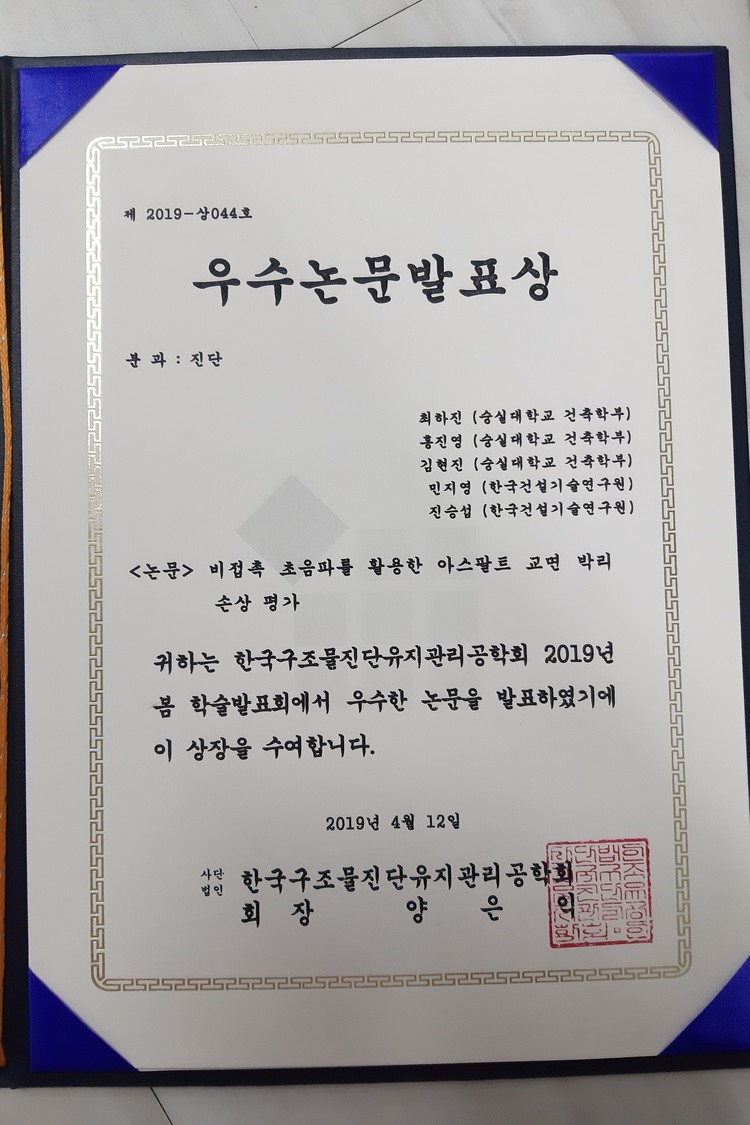 제 2019-상044호
우수논문발표상
분 과 : 진단
최하진 (숭실대학교 건축학부)
홍진영 (숭실대학교 건축학부)
김현진 (숭실대학교 건축학부)
민지영 (한국건설기술연구원)
진승섭 (한국건설기술연구원)
<논문> 비접촉 초음파를 활용한 아스팔트 교면 박리
손상 평가
귀하는 한국구조물진단유지관리공학회 2019년
봄 학술발표회에서 우수한 논문을 발표하였기에
이 상장을 수여합니다.
2019년 4월 12일
사단
법인 한국구조물진단유지관리공학회
회 장 양 은 익